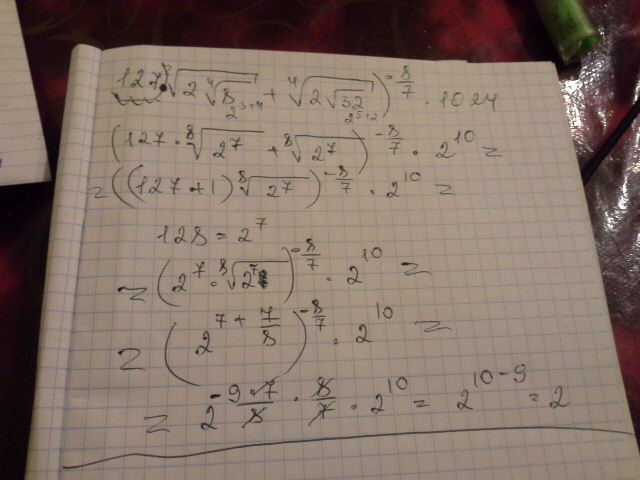 127 · ⁸√(2 ⁴√8) + ⁴√(2√32))^(-8/7) · 1024
2^(3+4) 2^(5+2)
(127 · ⁸√(2^7) + ⁸√(2^7))^(-8/7) · 2^10 =
= ((127 + 1) ⁸√(2^7))^(-8/7) · 2^10 =
128 = 2^7
= (2^7 · ⁸√(2^7))^(-8/7) · 2^10 =
= (2^(7 + 7/8))^(-8/7) · 2^10 =
= 2^(-(9·7)/8 · 8/7) · 2^10 = 2^(10-9) = 2